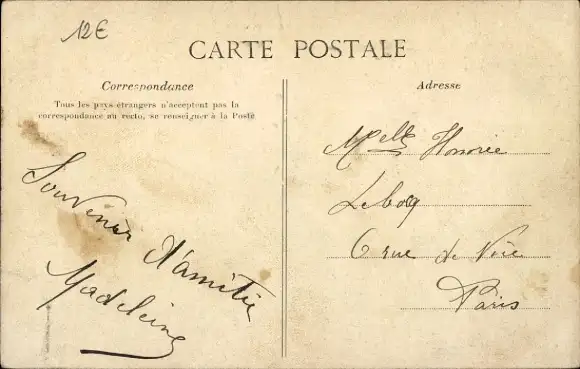 12€
CARTE POSTALE
Correspondance
Tous les pays étrangers n'acceptent pas la
correspondance au recto, se renseigner à la Poste
Souvenir d'amitié
Madeleine
Adresse
Mselle Honorée
6 rue de
Paris